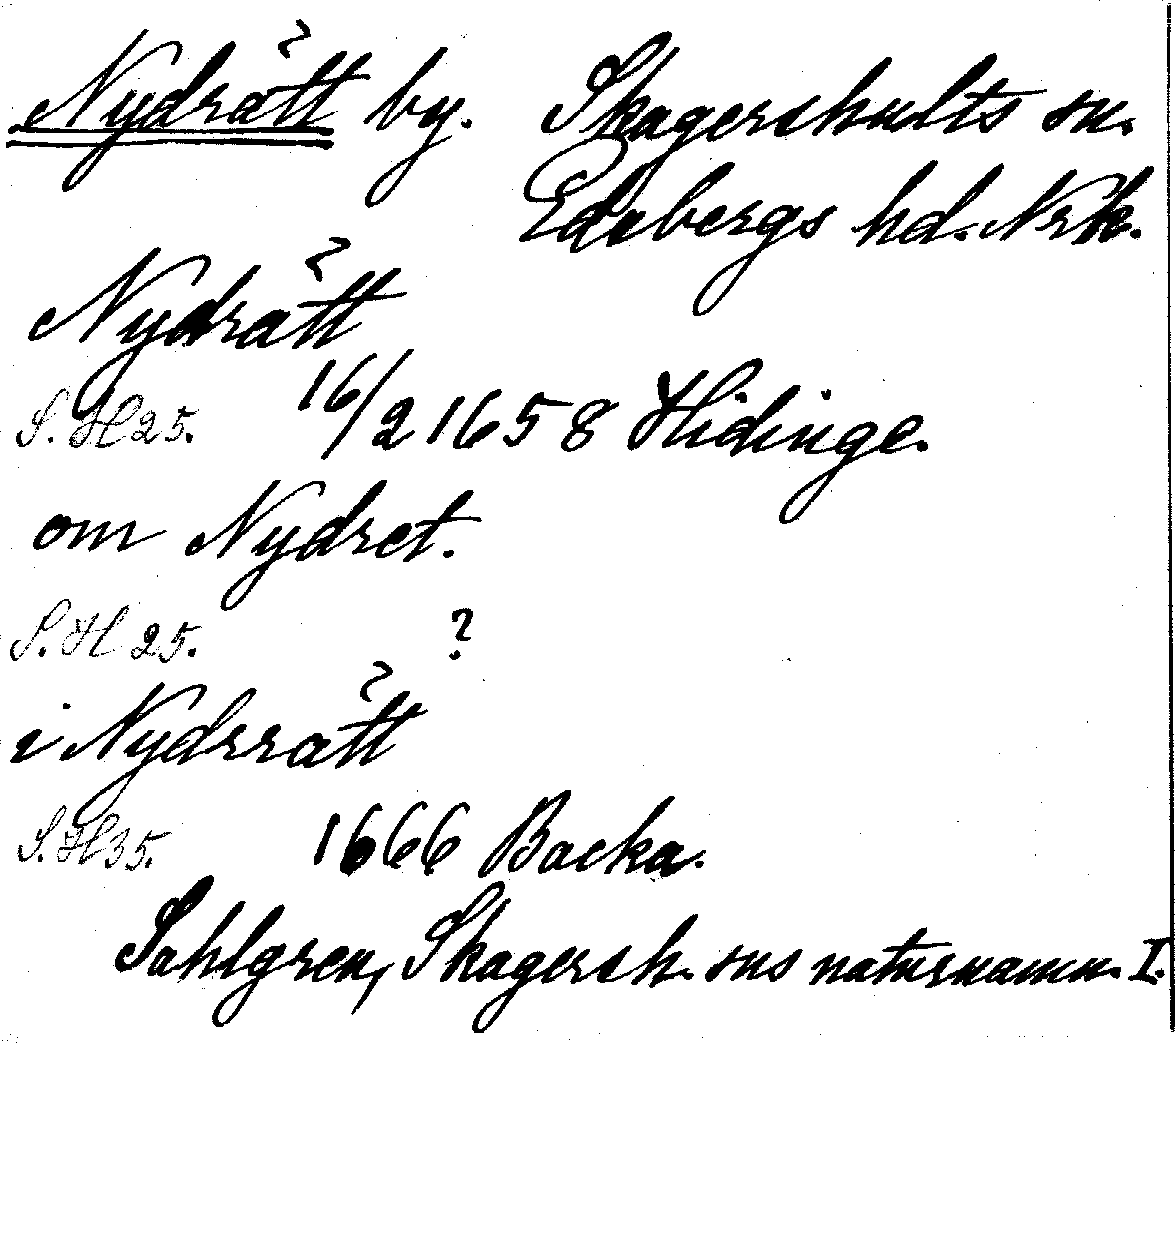 Nydrätt by. Skagershults sn.
Edsbergs hd. Nrk.
Nydrätt
S.H 25. 16/2 1658 Hidinge.
om Nydret.
S.H 25. ?
i Nydrrätt
S.H 35. 1666 Backa.
Sahlgren, Skagersh. sns naturnamn. I.